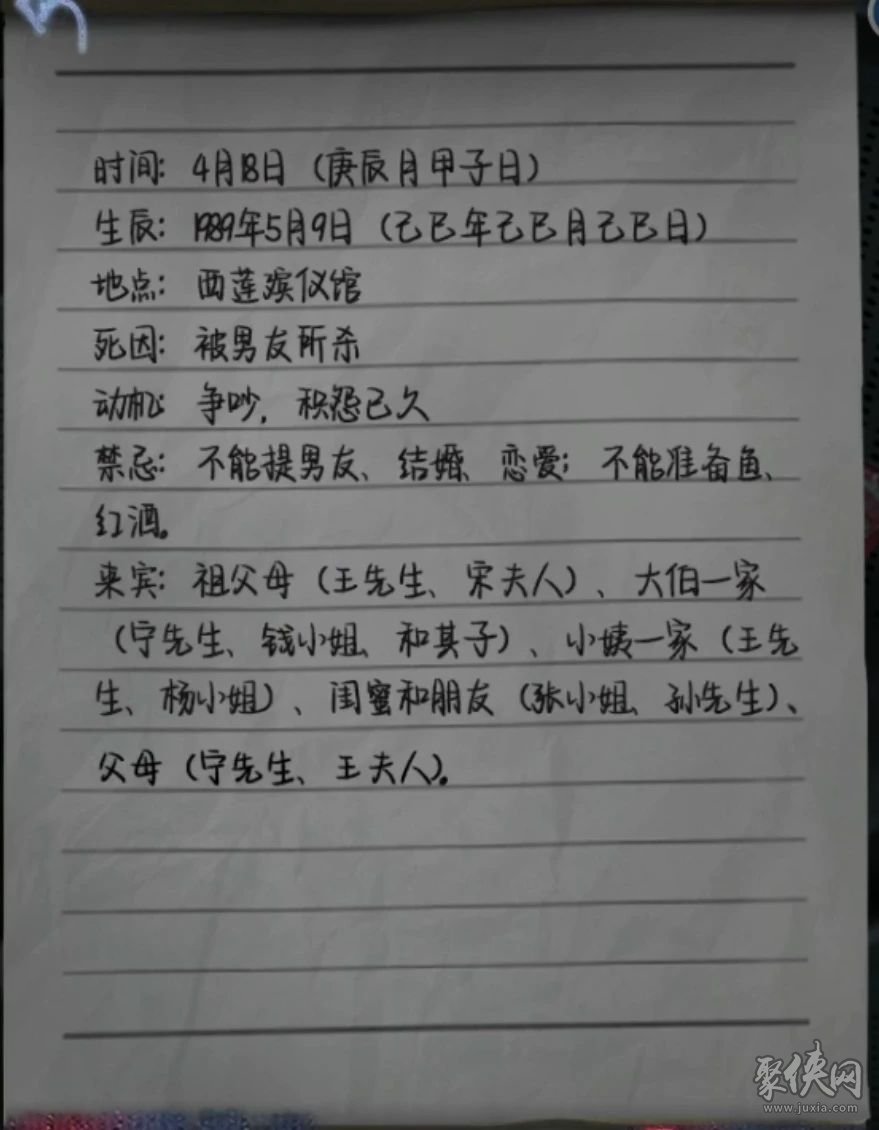 时间：4月18日（庚辰月甲子日）
生辰：1989年5月9日（己巳年己巳月己巳日）
地点：西莲殡仪馆
死因：被男友所杀
动机：争吵，积怨已久
禁忌：不能提男友、结婚、恋爱；不能准备鱼、
红酒。
来宾：祖父母（王先生、宋夫人）、大伯一家
（宁先生、钱小姐、和其子）、小姨一家（王先
生、杨小姐）、闺蜜和朋友（张小姐、孙先生）、
父母（宁先生、王夫人）。
聚侠网
www.juxia.com